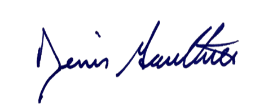 Denis Gauthier